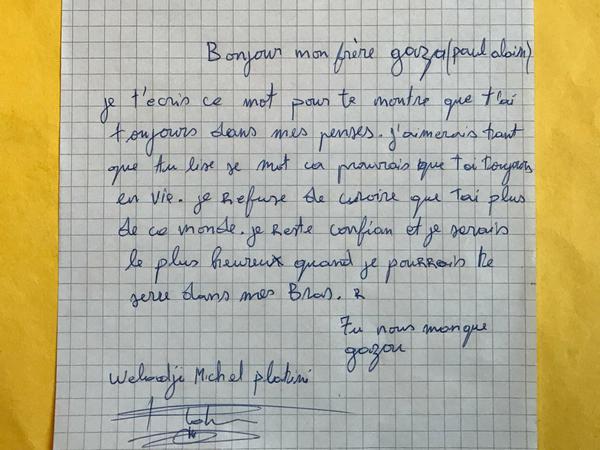 Bonjour mon frère gaza (paul alain)
je t'ecris ce mot pour te montre que t'ai
toujours dans mes penses. j'aimerais tant
que tu lise se mot ca prouvrais que tai toujours
en vie. je Refuse de croire que tai plus
de ce monde. je Reste confian et je serais
le plus heureux quand je pourrais te
serre dans mes Bras.
Tu nous manque
gazou
Wekadji Michel platini